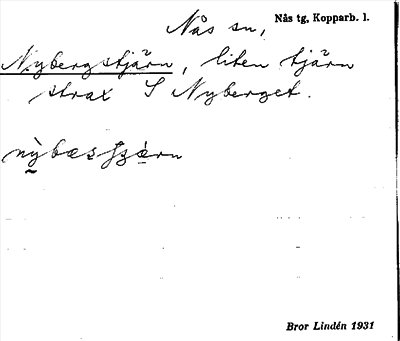 Nås sn, Nås tg, Kopparb. l.
Nybergstjärn, liten tjärn
strax S Nyberget.
Bror Lindén 1931